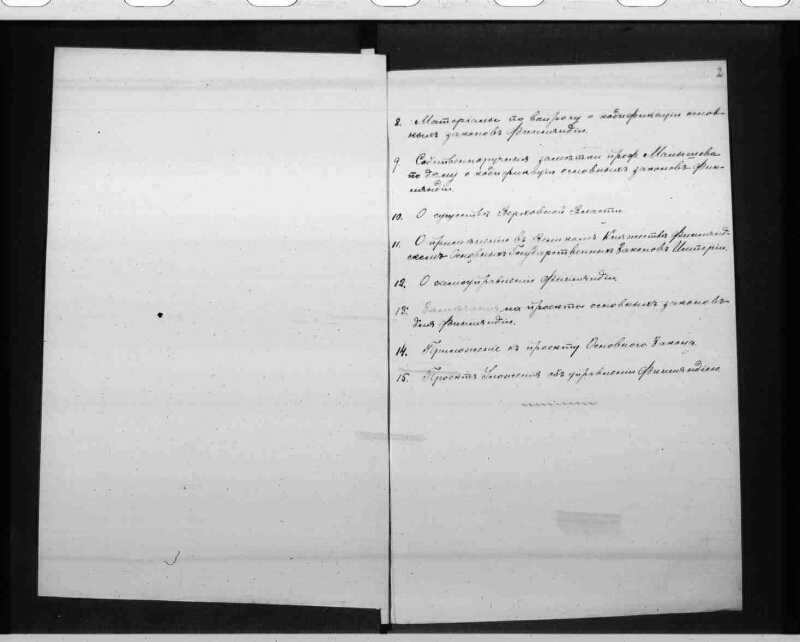 2
8. Матеріалы по вопросу о кодификаціи основ-
ныхъ законовъ Финляндіи.
9. Собственноручныя замѣтки проф. Малышева
по дѣлу о кодификаціи основныхъ законовъ Фин-
ляндіи.
10. О существѣ Верховной Власти.
11. О примѣненіи въ Великомъ Княжествѣ Финлянд-
скомъ Основныхъ Государственныхъ Законовъ Имперіи.
12. О самоуправленіи Финляндіи.
13. Замѣчанія на проекты основныхъ законовъ
для Финляндіи.
14. Приложеніе къ проекту Основного Закона.
15. Проектъ Уложенія объ управленіи Финляндіею